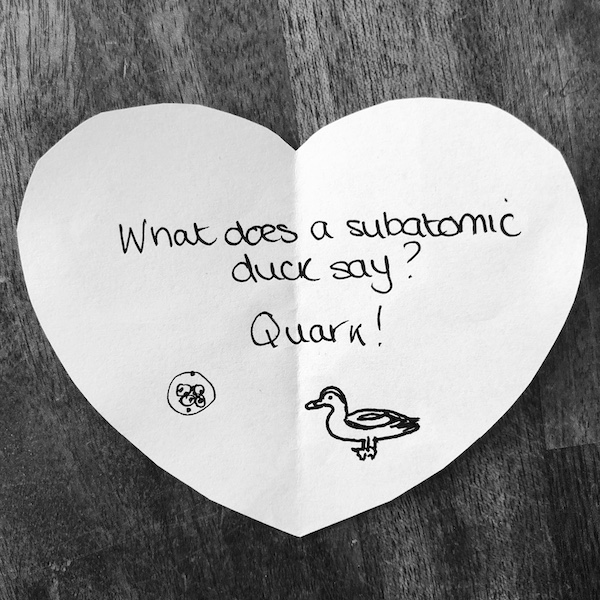 What does a subatomic
duck say?
Quark!